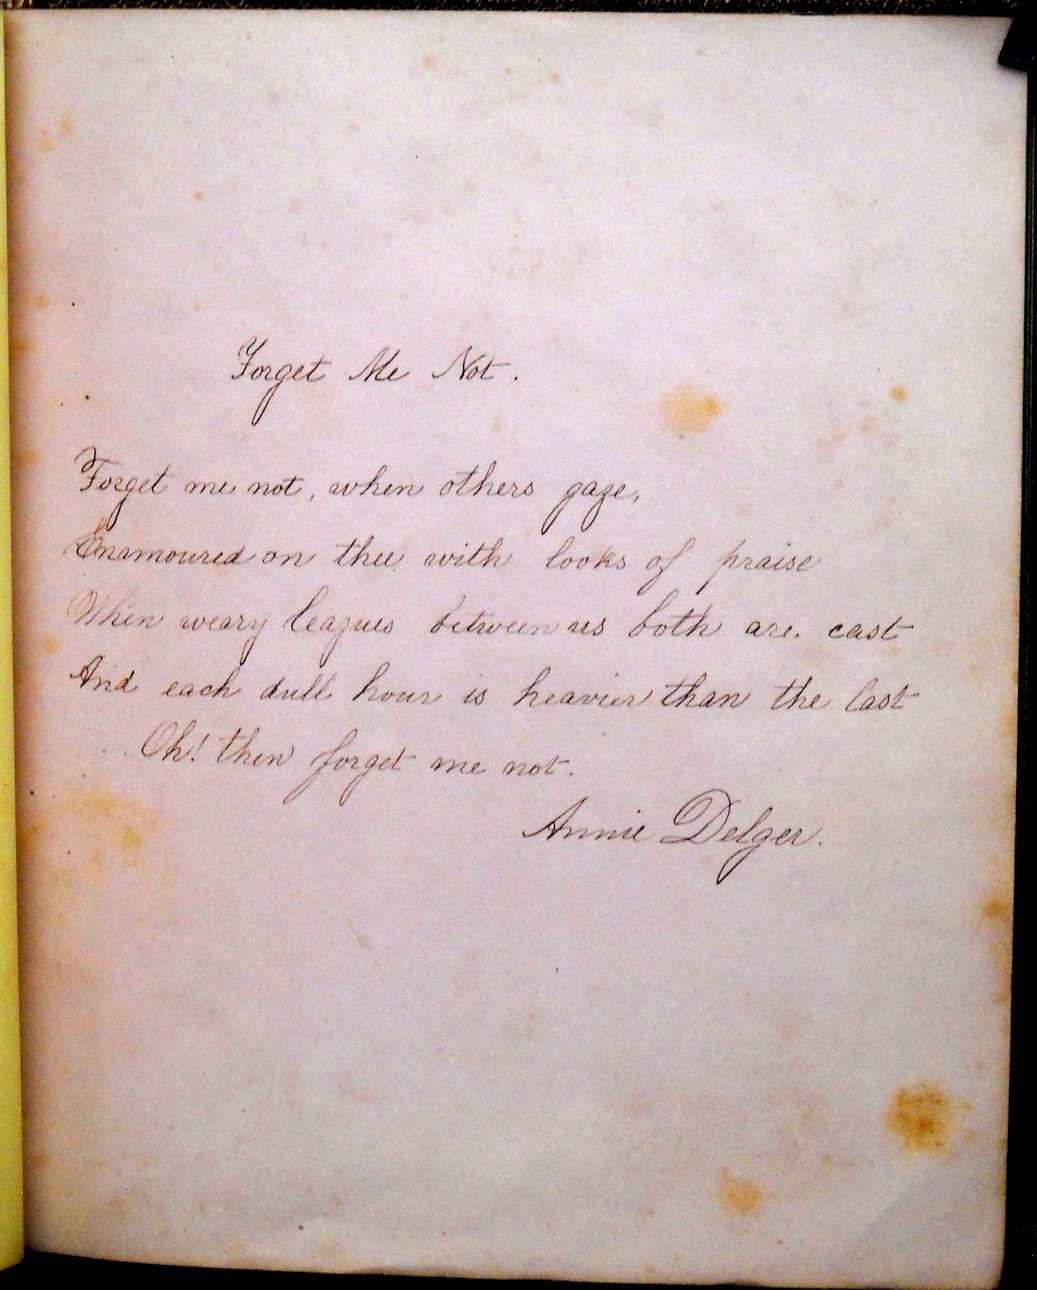 Forget Me Not.
Forget me not, when others gaze,
Enamoured on thee with looks of praise
When weary leagues between us both are. cast
And each dull hour is heavier than the last
Oh! then forget me not.
Annie Delger.